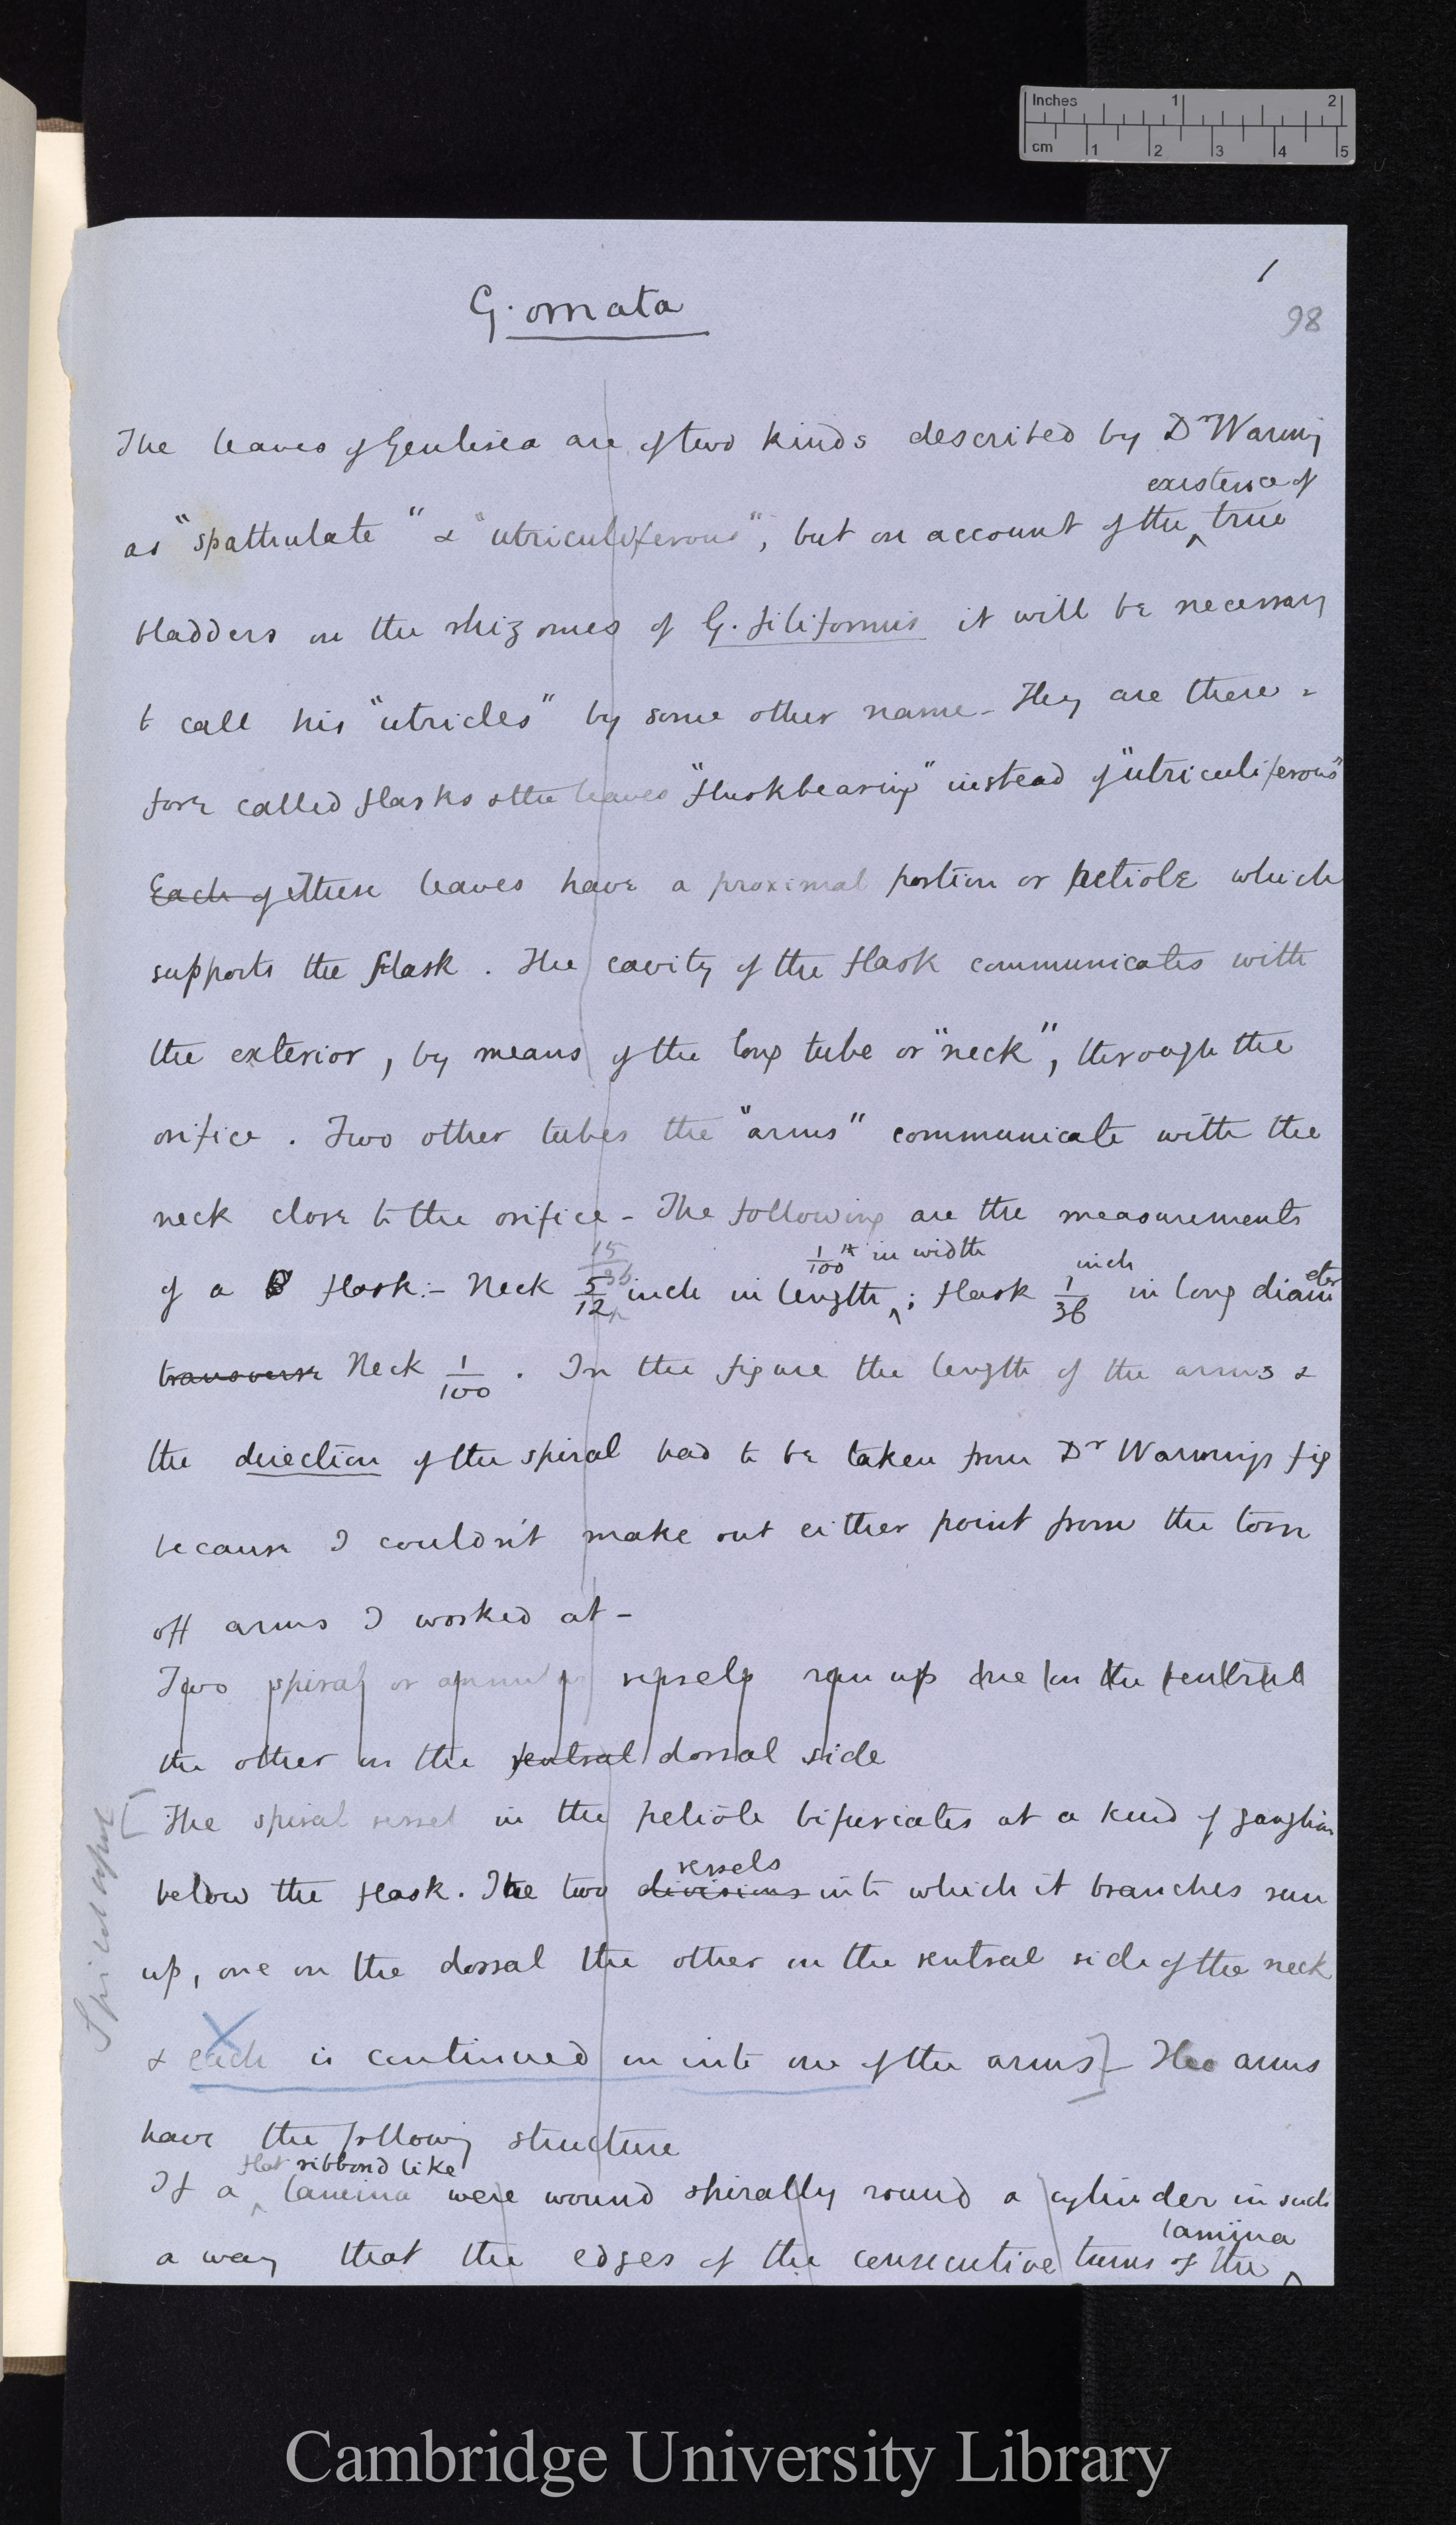 Inches 1 2
cm 1 2 3 4 5
1
98
G. ornata
The leaves of Genlisea are of two kinds described by Dr Warming
existence of
as "spathulate" & "utriculiferous", but on account of the ^ true
bladders on the rhizomes of G. filiformis it will be necessary
to call his "utricles" by some other name – They are there-
fore called flasks & the leaves "flaskbearing" instead of "utriculiferous"
Each of these leaves have a proximal portion or petiole which
supports the flask. The cavity of the flask communicates with
the exterior, by means of the long tube or "neck", through the
orifice. Two other tubes the "arms" communicate with the
neck close to the orifice – The following are the measurements
15/36 1/100th in width inch
of a flask:– Neck 5/12 inch in length ^; flask 1/36 in long diameter
transverse Neck 1/100. In the figure the length of the arms &
the direction of the spiral had to be taken from Dr Warmings fig
because I couldn't make out either point from the torn
off arms I worked at –
Two spiral or annular vessels run up one on the ventral
the other on the ventral dorsal side
[The spiral vessel in the petiole bifurcates at a kind of ganglion
vessels
below the flask. The two divisions into which it branches run
up, one on the dorsal the other on the ventral side of the neck
X
& each is continued on into one of the arms] – The arms
have the following structure
flat ribbond like
If a ^ lamina were wound spirally round a cylinder in such
lamina
a way that the edges of the consecutive turns of the ^
Cambridge University Library